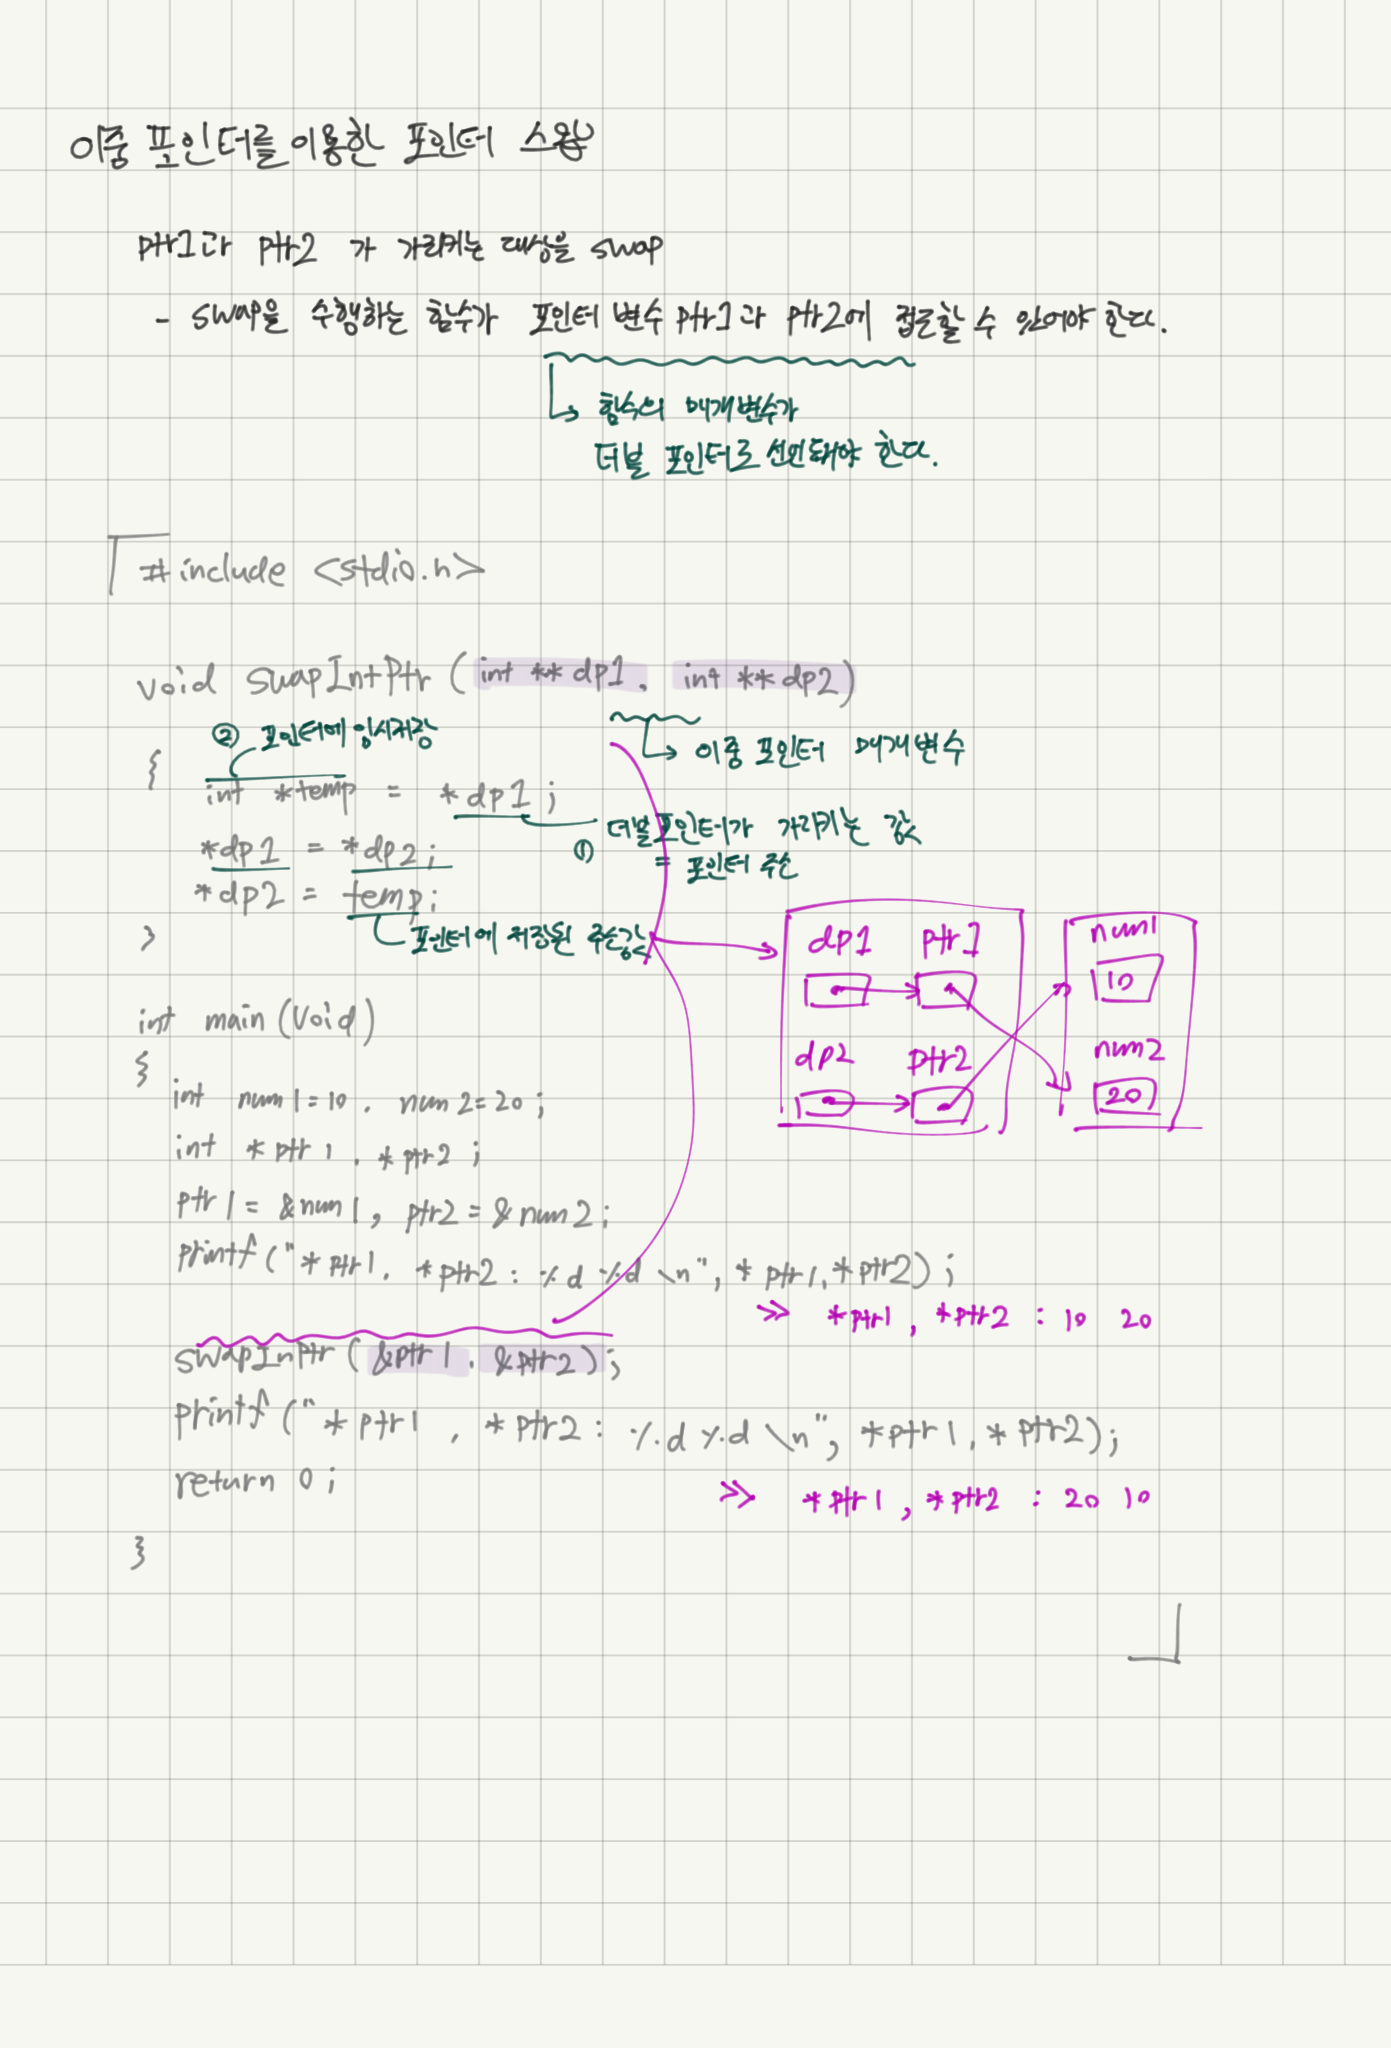 이중 포인터를 이용한 포인터 스왑
ptr1과 ptr2 가 가리키는 대상을 swap
- swap을 수행하는 함수가 포인터 변수 ptr1과 ptr2에 접근할 수 있어야 한다.
함수의 매개변수가
더블 포인터로 선언돼야 한다.
#include <stdio.h>
void SwapIntPtr (int ** dp1, int ** dp2)
② 포인터에 임시저장
이중 포인터 매개변수
{
int *temp = *dp1;
① 더블포인터가 가리키는 값
= 포인터 주소
*dp1 = *dp2;
*dp2 = temp;
포인터에 저장된 주소값
}
dp1 ptr1 num1
10
dp2 ptr2 num2
20
int main (void)
{
int num1=10, num2=20;
int *ptr1, *ptr2;
ptr1 = &num1, ptr2 = &num2;
printf("*ptr1, *ptr2 : %d %d \n", *ptr1, *ptr2);
>> *ptr1, *ptr2 : 10 20
swapInPtr (&ptr1, &ptr2);
printf("*ptr1, *ptr2 : %d %d \n", *ptr1, *ptr2);
return 0;
>> *ptr1, *ptr2 : 20 10
}